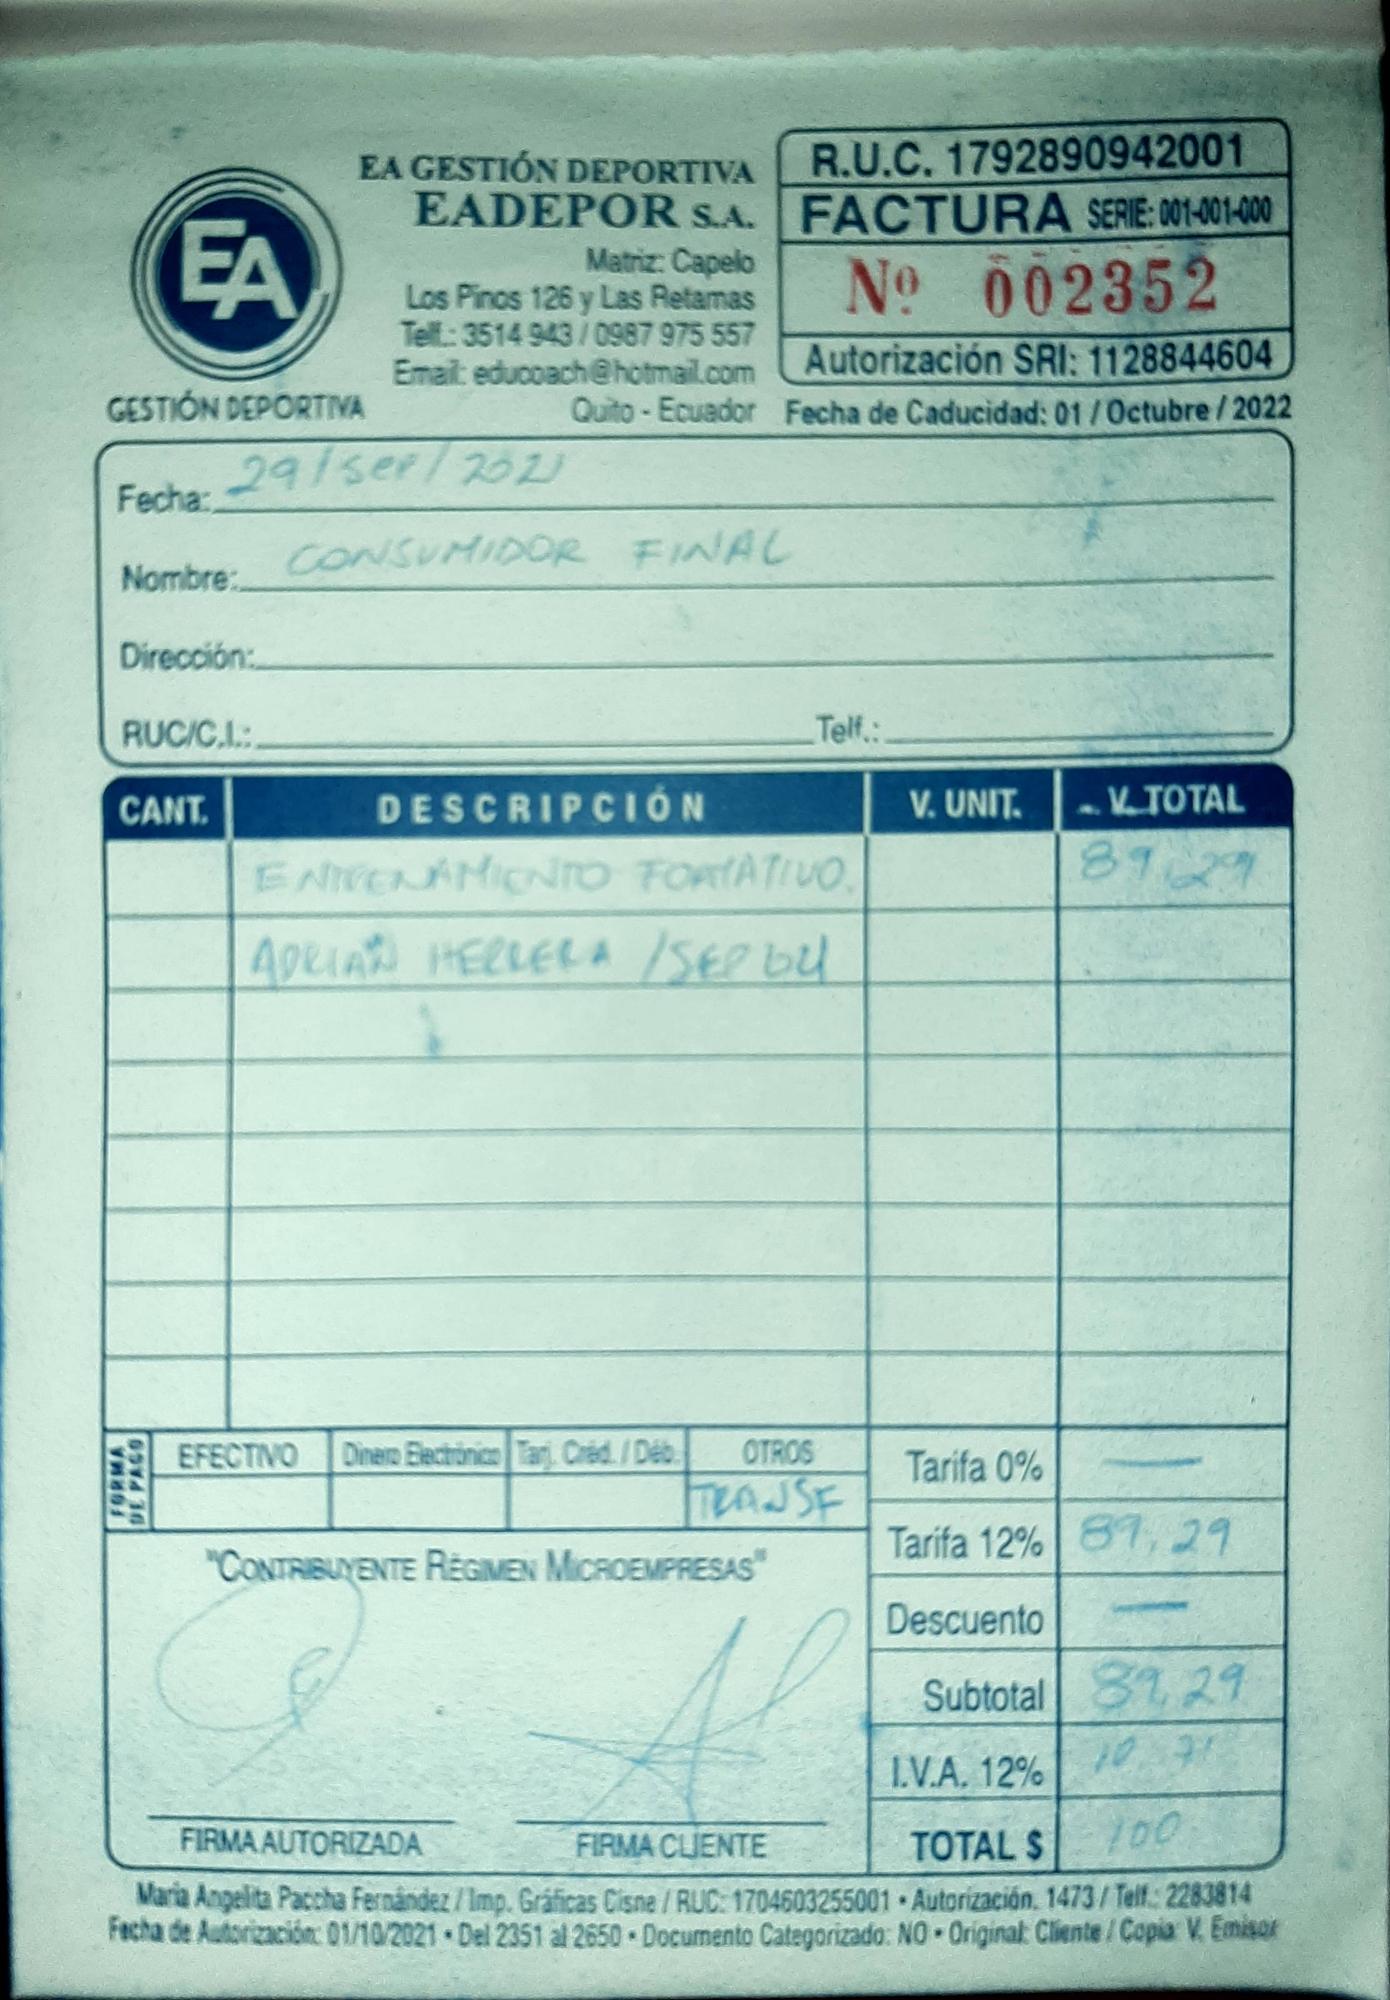 EA
GESTIÓN DEPORTIVA
EA GESTIÓN DEPORTIVA
EADEPOR S.A.
Matriz: Capelo
Los Pinos 126 y Las Retamas
Telf.: 3514 943 / 0987 975 557
Email: educoach@hotmail.com
Quito - Ecuador
R.U.C. 1792890942001
FACTURA SERIE: 001-001-000
Nº 002352
Autorización SRI: 1128844604
Fecha de Caducidad: 01 / Octubre / 2022
Fecha: 29/SEP/2021
Nombre: CONSUMIDOR FINAL
Dirección:
RUC/C.I.: Telf.:
CANT. DESCRIPCIÓN V. UNIT. V. TOTAL
ENTRENAMIENTO FORMATIVO. 89,29
ADRIAN HERRERA /SEP
FORMA DE PAGO EFECTIVO Dinero Electrónico Tarj. Créd. / Déb. OTROS
TRANSF
Tarifa 0% —
Tarifa 12% 89,29
Descuento —
Subtotal 89,29
I.V.A. 12% 10,71
TOTAL $ 100
"CONTRIBUYENTE RÉGIMEN MICROEMPRESAS"
FIRMA AUTORIZADA FIRMA CLIENTE
María Angelita Paccha Fernández / Imp. Gráficas Cisne / RUC: 1704603255001 • Autorización. 1473 / Telf.: 2283814
Fecha de Autorización: 01/10/2021 • Del 2351 al 2650 • Documento Categorizado: NO • Original: Cliente / Copia: V. Emisor